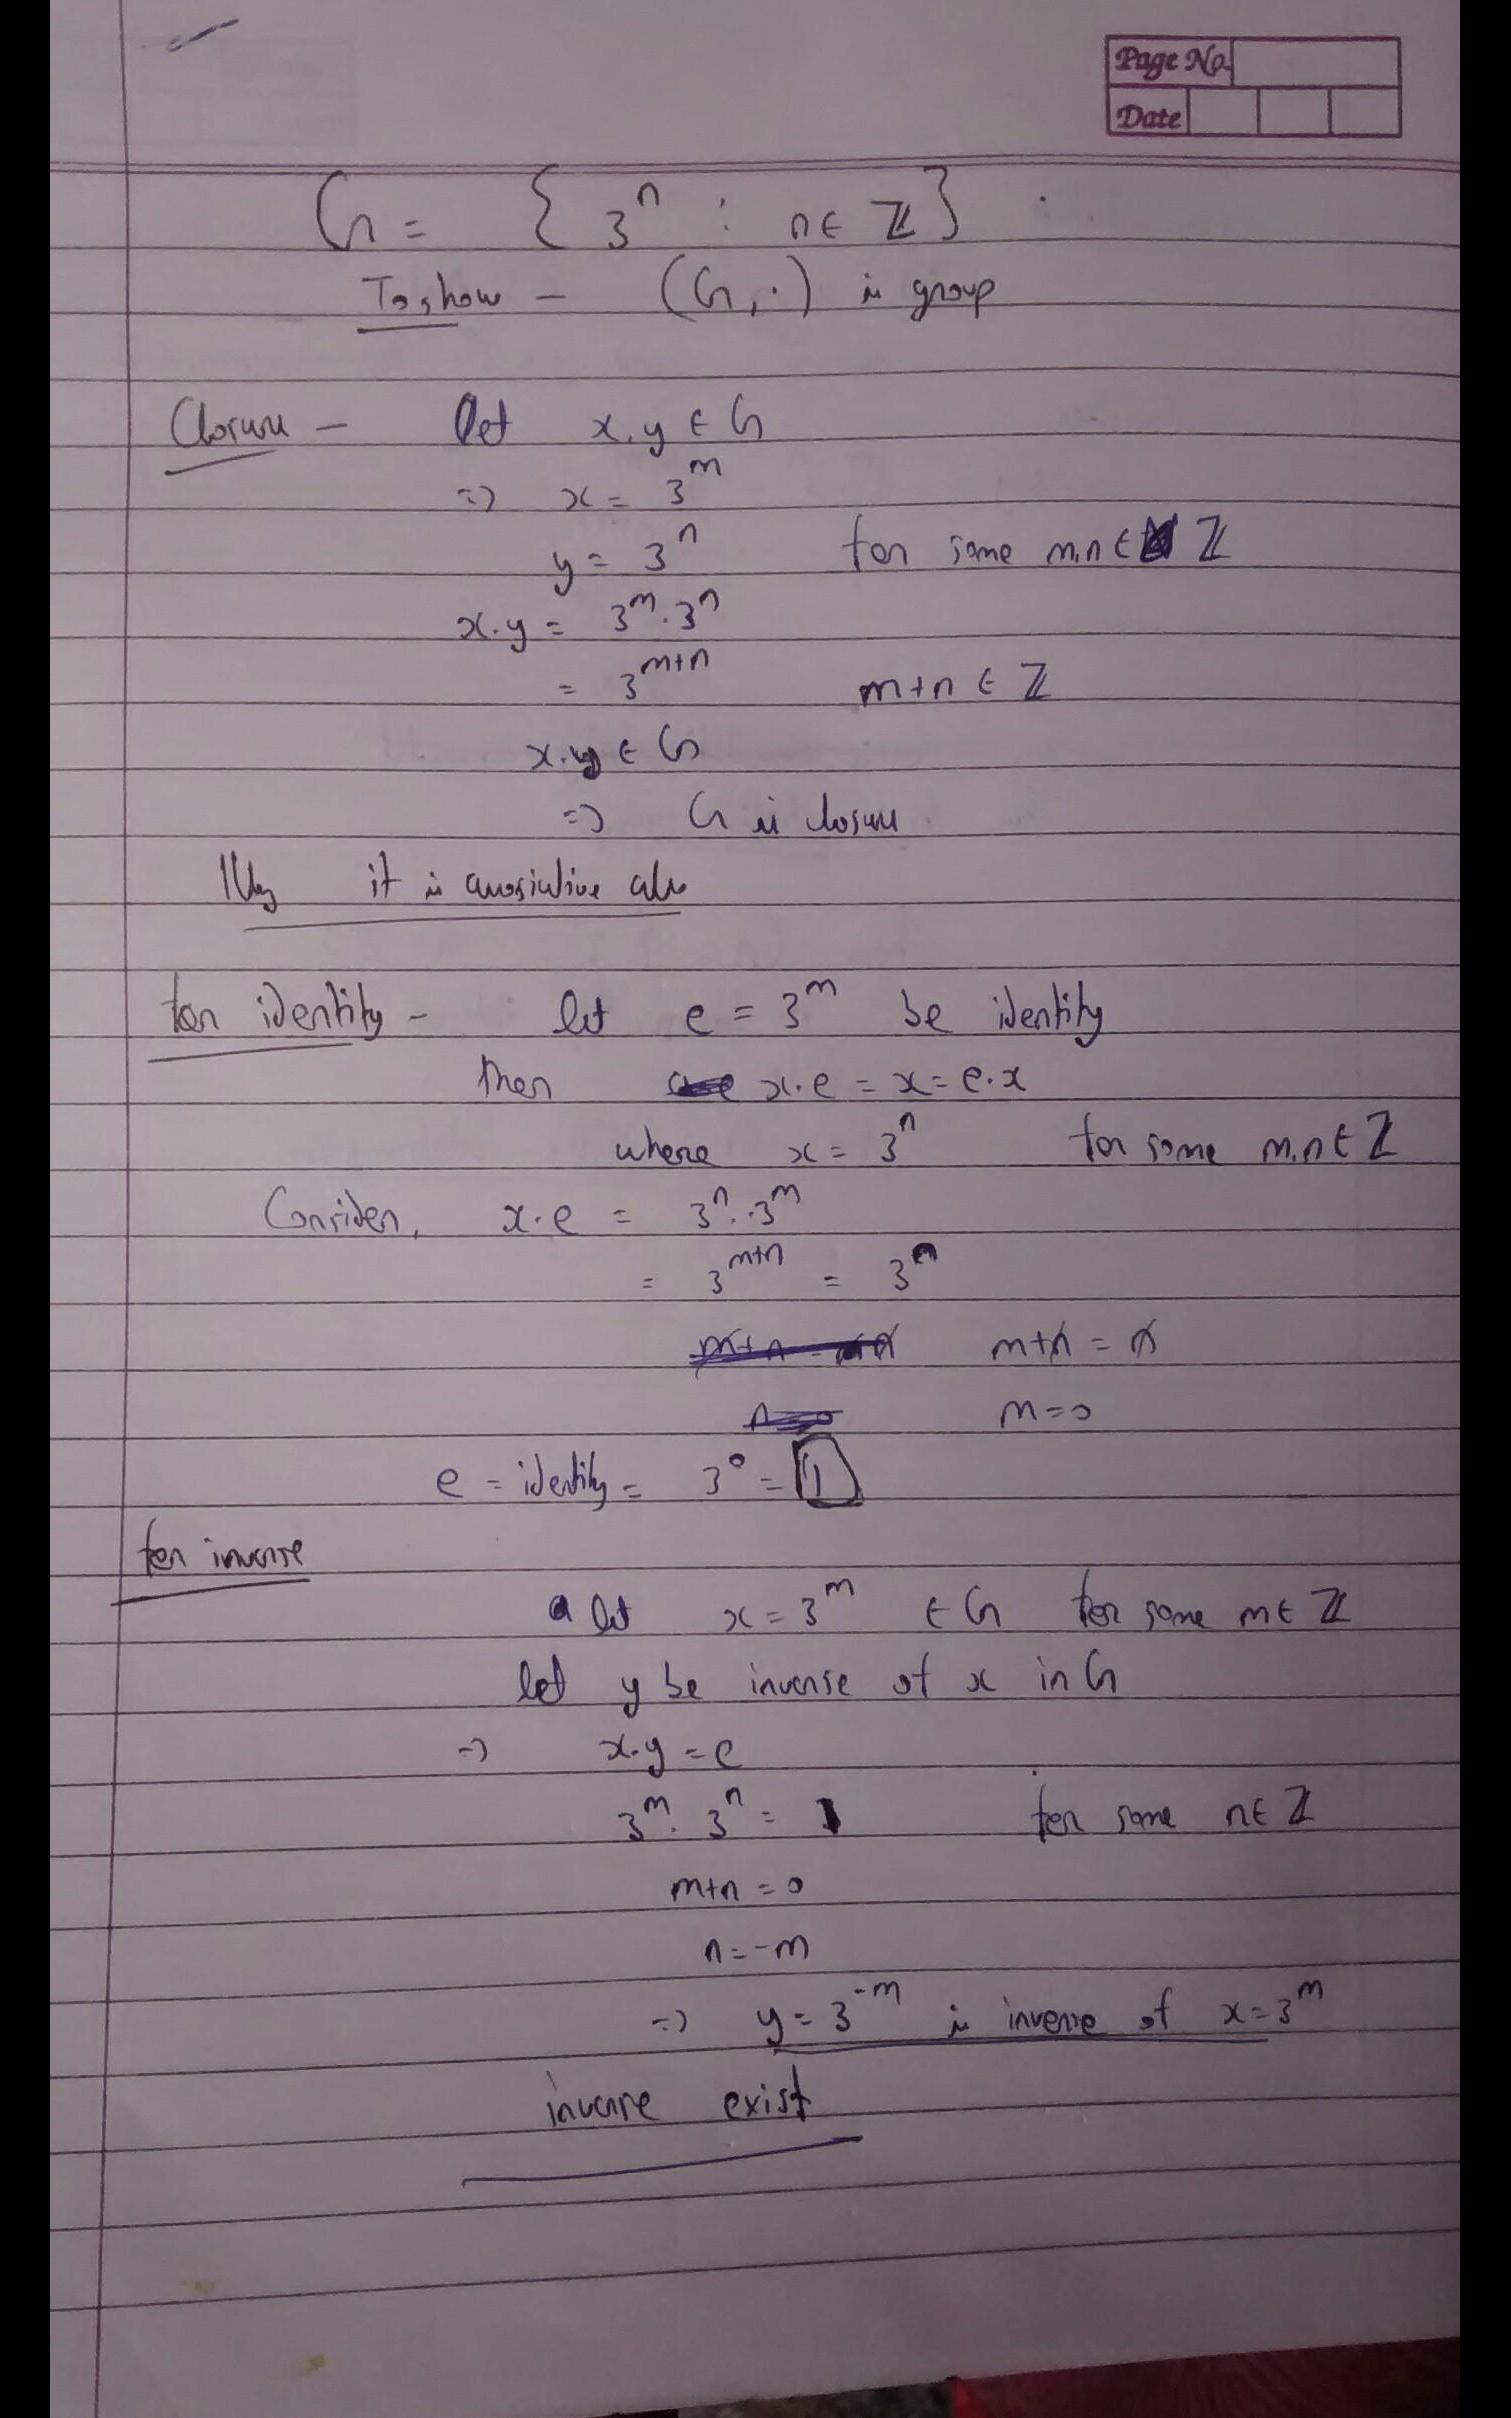 Page No.
Date
G = { 3^n : n ∈ ℤ }
To show - (G, ·) is group
Closure - let x, y ∈ G
=> x = 3^m
y = 3^n for some m,n ∈ ℤ
x.y = 3^m . 3^n
= 3^{m+n} m+n ∈ ℤ
x.y ∈ G
=> G is closure
|||ly it is associative also
for identity - let e = 3^m be identity
then x.e = x = e.x
where x = 3^n for some m,n ∈ ℤ
Consider, x.e = 3^n . 3^m
= 3^{m+n} = 3^n
m+n = n
m = 0
e = identity = 3^0 = 1
for inverse
let x = 3^m ∈ G for some m ∈ ℤ
let y be inverse of x in G
=> x.y = e
3^m . 3^n = 1 for some n ∈ ℤ
m+n = 0
n = -m
=> y = 3^{-m} is inverse of x = 3^m
inverse exist